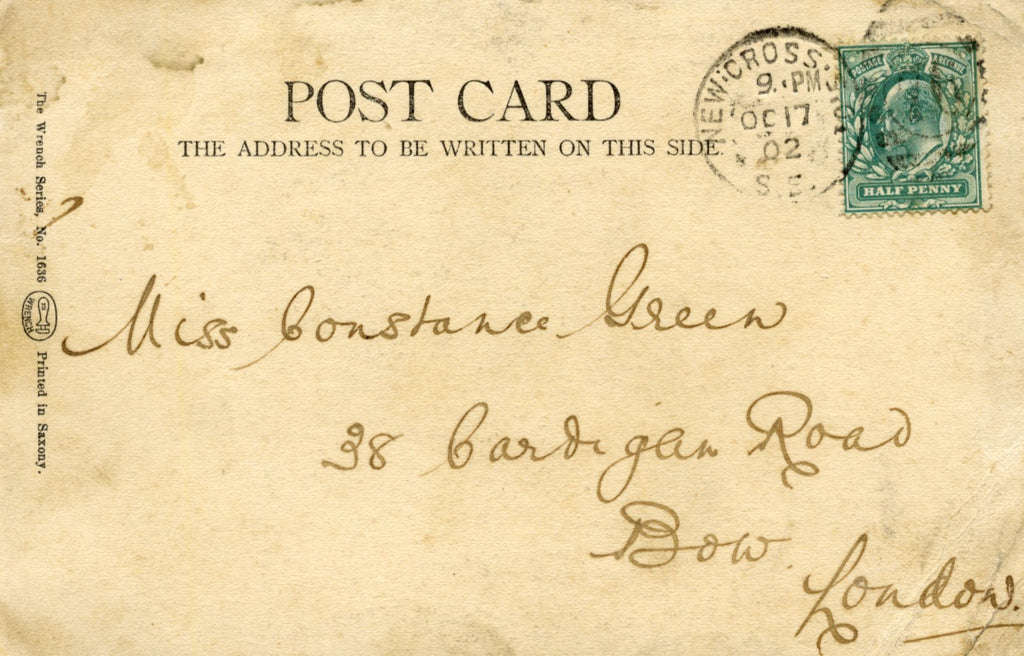 POST CARD
THE ADDRESS TO BE WRITTEN ON THIS SIDE.
NEW CROSS.
9. PM
OC 17
02
S.E.
POSTAGE REVENUE
HALF PENNY
The Wrench Series, No. 1636 WRENCH Printed in Saxony.
Miss Constance Green
38 Cardigan Road
Bow
London.